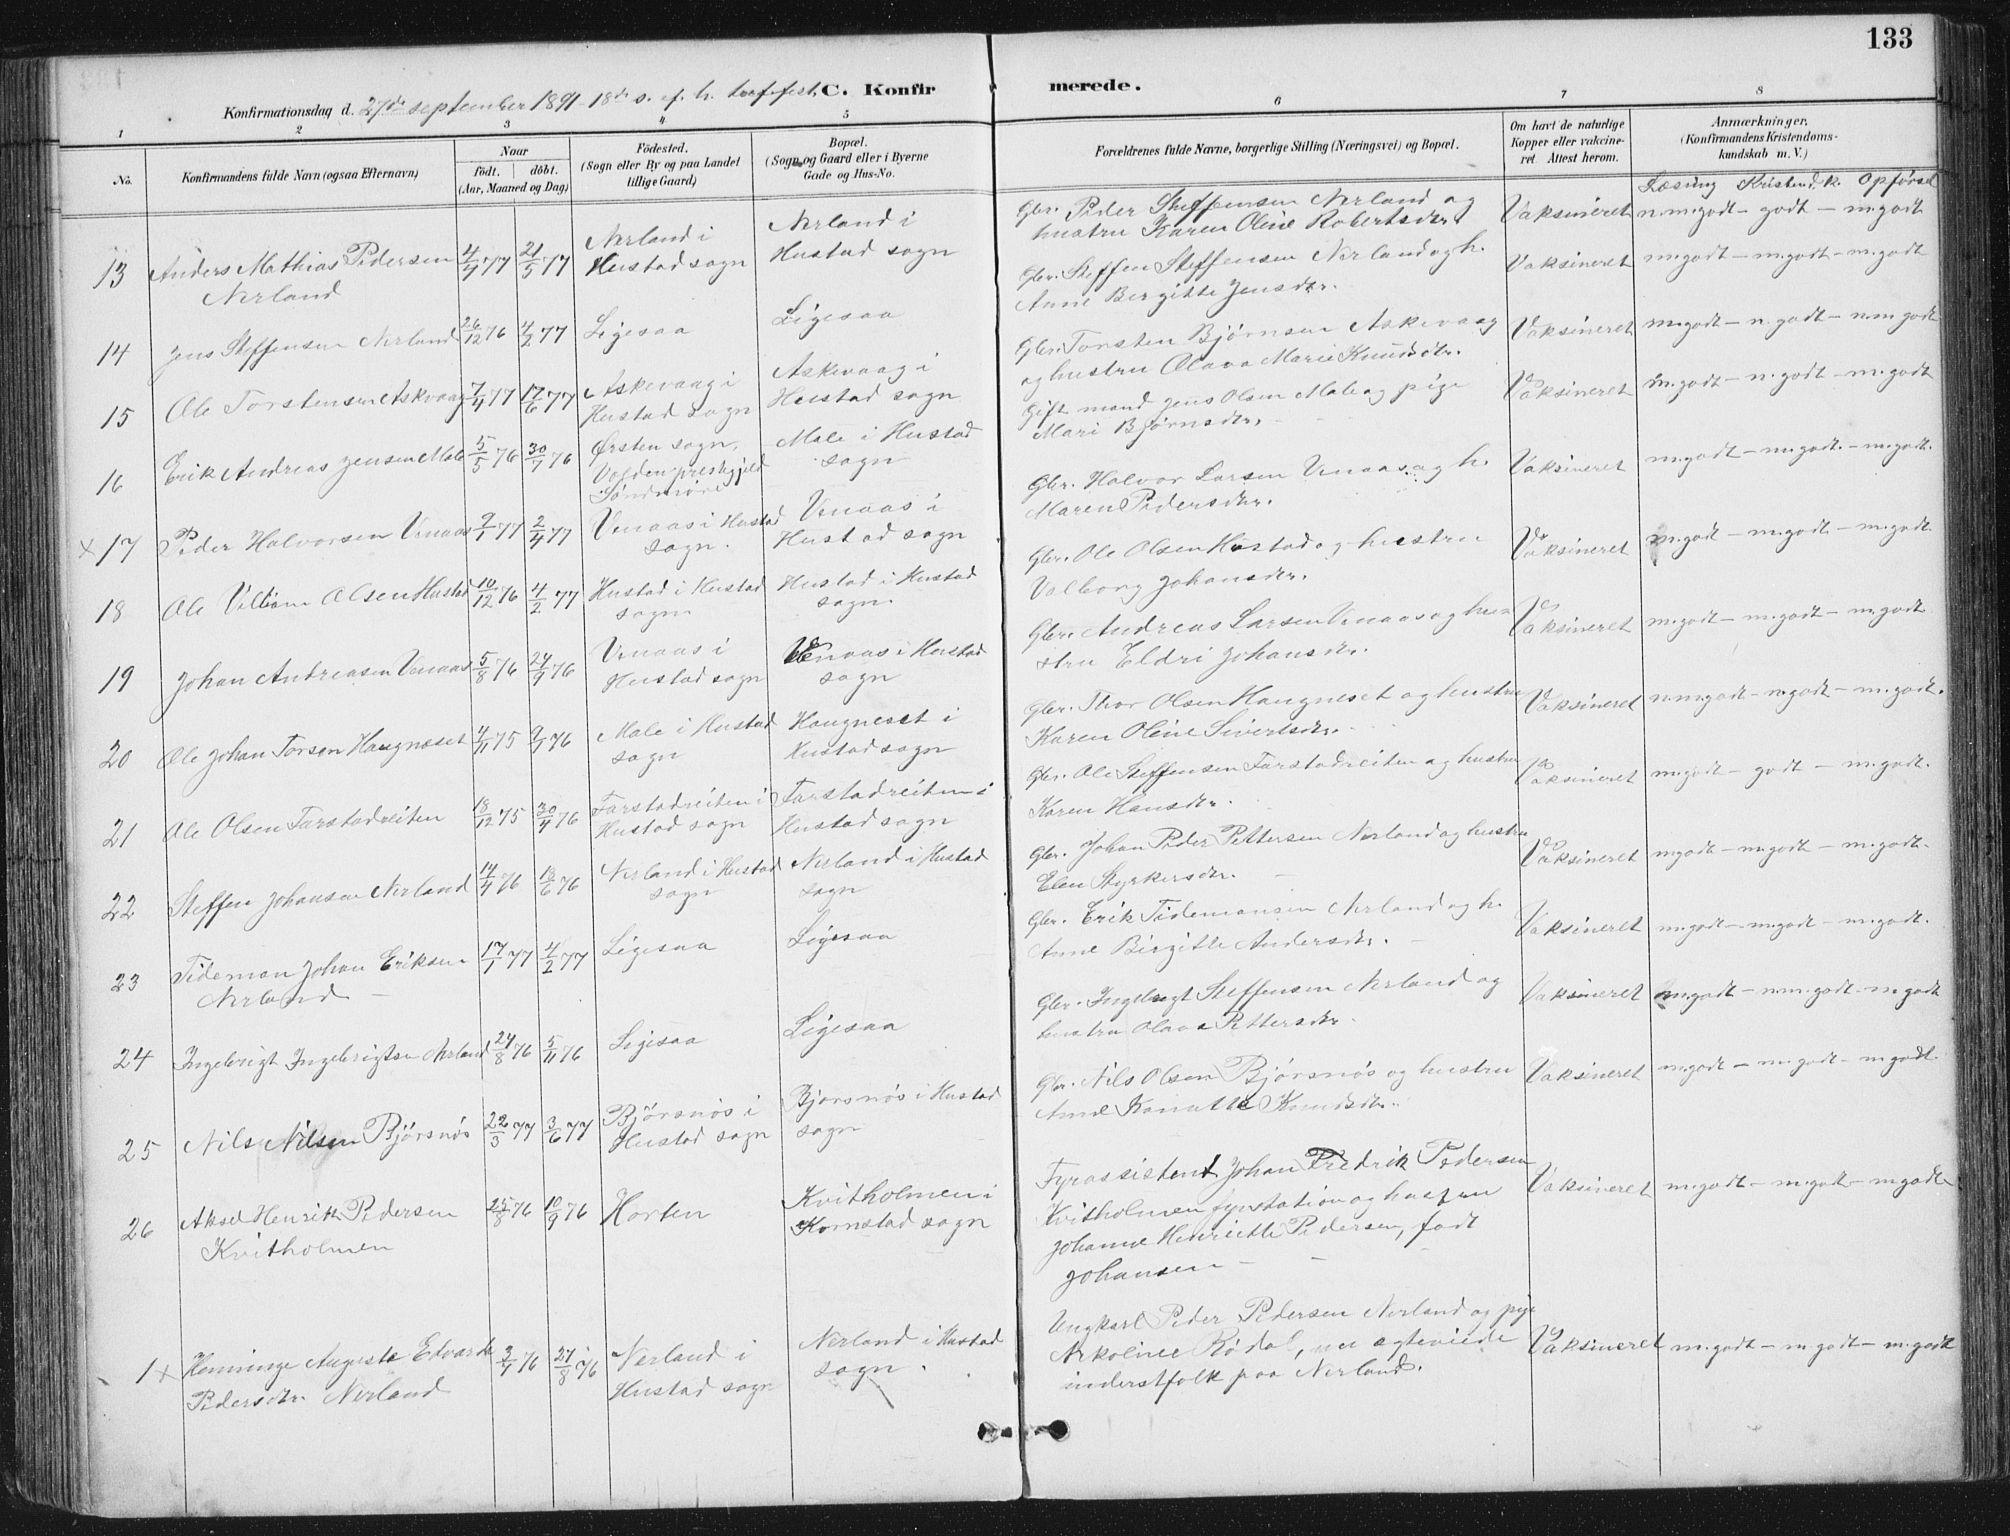 133
Konfirmationsdag d. 27de september 1891 - 18de s. ef. h. treffest. C. Konfirmerede.
1 2 3 4 5 6 7 8
No. Konfirmandens fulde Navn (ogsaa Efternavn)
Naar født. døbt. (Aar, Maaned og Dag)
Fødested. (Sogn eller By og paa Landet tillige Gaard)
Bopæl. (Sogn og Gaard eller i Byerne Gade og Hus-No.
Forældrenes fulde Navne, borgerlige Stilling (Næringsvei) og Bopæl.
Om havt de naturlige Kopper eller vakcineret. Attest herom.
Anmærkninger. (Konfirmandens Kristendomskundskab m. V.)
Læsning Kristend.k. Opførsel
13 Anders Mathias Pedersen Nerland 4/4 77 21/5 77 Nerland i Hustad sogn Nerland i Hustad sogn
Gbr. Peder Steffensen Nerland og hustru Karen Oline Robertsdtr. Vaksineret n.m.godt - godt - m.godt
14 Jens Steffensen Nerland 26/12 76 4/2 77 Ligesaa Ligesaa
Gbr. Steffen Steffensen Nerland og h. Anne Bergitte Jensdtr. Vaksineret m.godt - m.godt - m.godt
15 Ole Torstensen Askvaag 7/4 77 17/6 77 Askevaag i Hustad sogn Askevaag i Hustad sogn
Gbr. Torsten Bjørnsen Askevaag og hustru Olava Marie Knudsdtr. Vaksineret m.godt - n.godt - n.m.godt
16 Erik Andreas Jensen Male 5/5 76 30/7 76 Ørsten sogn, Volden prestegjeld Søndmøre Male i Hustad sogn
Gift mand Jens Olsen Male og pige Mari Bjørnsdtr. Vaksineret m.godt - n.godt - m.godt
x 17 Peder Halvorsen Venaas 9/1 77 2/4 77 Venaas i Hustad sogn. Venaas i Hustad sogn
Gbr. Halvor Larsen Venaas og h. Maren Pedersdtr. Vaksineret m.godt - m.godt. - m.godt.
18 Ole Villiam Olsen Hustad 10/12 76 4/2 77 Hustad i Hustad sogn Hustad i Hustad sogn
Gbr. Ole Olsen Hustad og hustru Valborg Johansdtr. Vaksineret m.godt - m.godt - m.godt
19 Johan Andreasen Venaas 5/8 76 24/9 76 Venaas i Hustad sogn Venaas i Hustad sogn
Gbr. Andreas Larsen Venaas og hustru Eldri Johansdtr. Vaksineret m.godt - m.godt - m.godt
20 Ole Johan Torsen Haugneset 4/11 75 9/1 76 Male i Hustad sogn Haugneset i Hustad sogn
Gbr. Thor Olsen Haugneset og hustru Karen Oline Sivertsdtr. Vaksineret n.m.godt - m.godt - m.godt.
21 Ole Olsen Farstadreiten 18/12 75 30/4 76 Farstadreiten i Hustad sogn Farstadreiten i Hustad sogn
Gbr. Ole Steffensen Farstadreiten og hustru Karen Hansdtr. Vaksineret m.godt - godt - m.godt.
22 Steffen Johansen Nerland 14/4 76 18/6 76 Nerland i Hustad sogn Nerland i Hustad sogn
Gbr. Johan Peder Pettersen Nerland og hustru Elen Styrkersdtr. Vaksineret m.godt - m.godt - m.godt.
23 Tideman Johan Eriksen Nerland 17/1 77 4/2 77 Ligesaa Ligesaa
Gbr. Erik Tidemansen Nerland og h. Anne Birgitte Andersdtr. Vaksineret m.godt - m.godt - m.godt.
24 Ingebrigt Ingebrigtsen Nerland 24/8 76 5/11 76 Ligesaa Ligesaa
Gbr. Ingebrigt Steffensen Nerland og hustru Olava Pettersdtr. Vaksineret m.godt - n.m.godt - m.godt
25 Nils Nilsen Bjørsnøs 22/3 77 3/6 77 Bjørsnøs i Hustad sogn Bjørsnøs i Hustad sogn
Gbr. Nils Olsen Bjørsnøs og hustru Anne Knudsdtr. Vaksineret m.godt - m.godt - m.godt.
26 Aksel Henrik Pedersen Kvitholmen 25/8 76 10/9 76 Horten Kvitholmen i Kornstad sogn
Fyrassistent Johan Fredrik Pedersen Kvitholmen fyrstation og hustru Johanne Henriette Pedersen, født Johansen Vaksineret m.godt - m.godt - m.godt
1 x Henninge Auguste Edvarda Pedersdtr. Nerland 3/7 76 27/8 76 Nerland i Hustad sogn Nerland i Hustad sogn.
Ungkarl Peder Pedersen Nerland og pige Nekoline Rødal, nu egteviede inderstfolk paa Nerland. Vaksineret m.godt - m.godt - m.godt